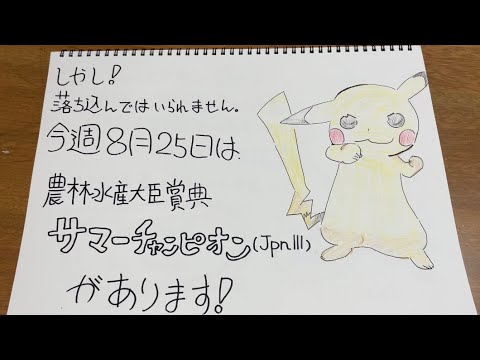 しかし!
落ち込んではいられません。
今週8月25日は
農林水産大臣賞典
サマーチャンピオン(JpnIII)
があります!